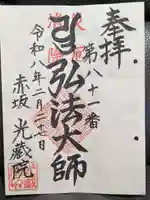 奉拝
第八十一番
弘法大師
令和八年二月二七日
赤坂 光蔵院